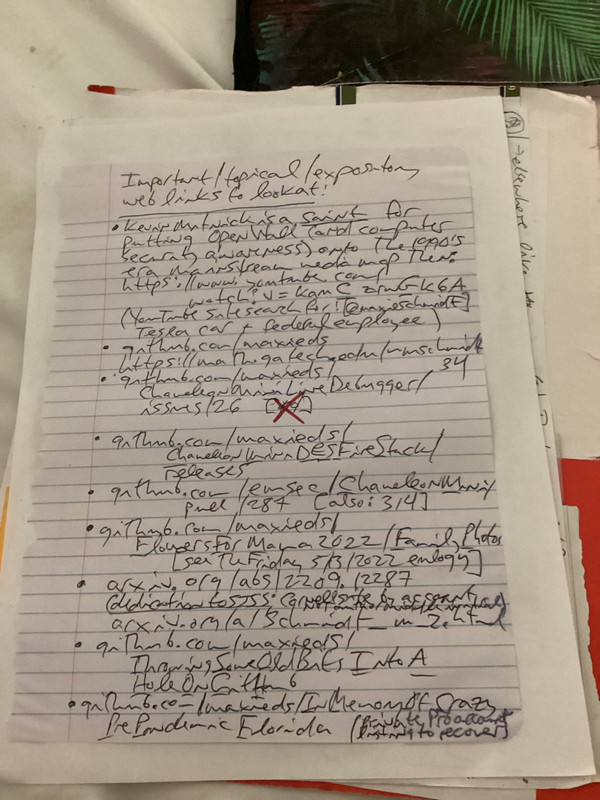 Important/topical/expository
web links to look at!
• Kevin Mitnick is a saint for
putting OpenWall (and computer
security awareness) onto the 1990's
era mainstream media map then:
https://www.youtube.com/
watch?v=
(YouTube site search for: [@maxieschmidt]
Tesla car + federal employee)
• github.com/maxieds
https://math.gatech.edu/~mschmidt34
• github.com/maxieds/
ChameleonMiniLiveDebugger/
issues/26
• github.com/maxieds/
ChameleonMiniDESFireStack/
releases
• github.com/emsec/ChameleonMini/
pull/287 [also: 314]
• github.com/maxieds/
FlowersForMama2022/FamilyPhotos
[see The Friday 5/3/2022 eulogy]
• arxiv.org/abs/2209.12287
(dedication to SJSS:
arxiv.org/a/Schmidt_m_2.html
• github.com/maxieds/
ThrowingSomeOldBitsIntoA
HoleOnGitHub
• github.com/maxieds/InMemoryOfCrazy
PrePandemicFlorida (
to recover)
→ elsewhere